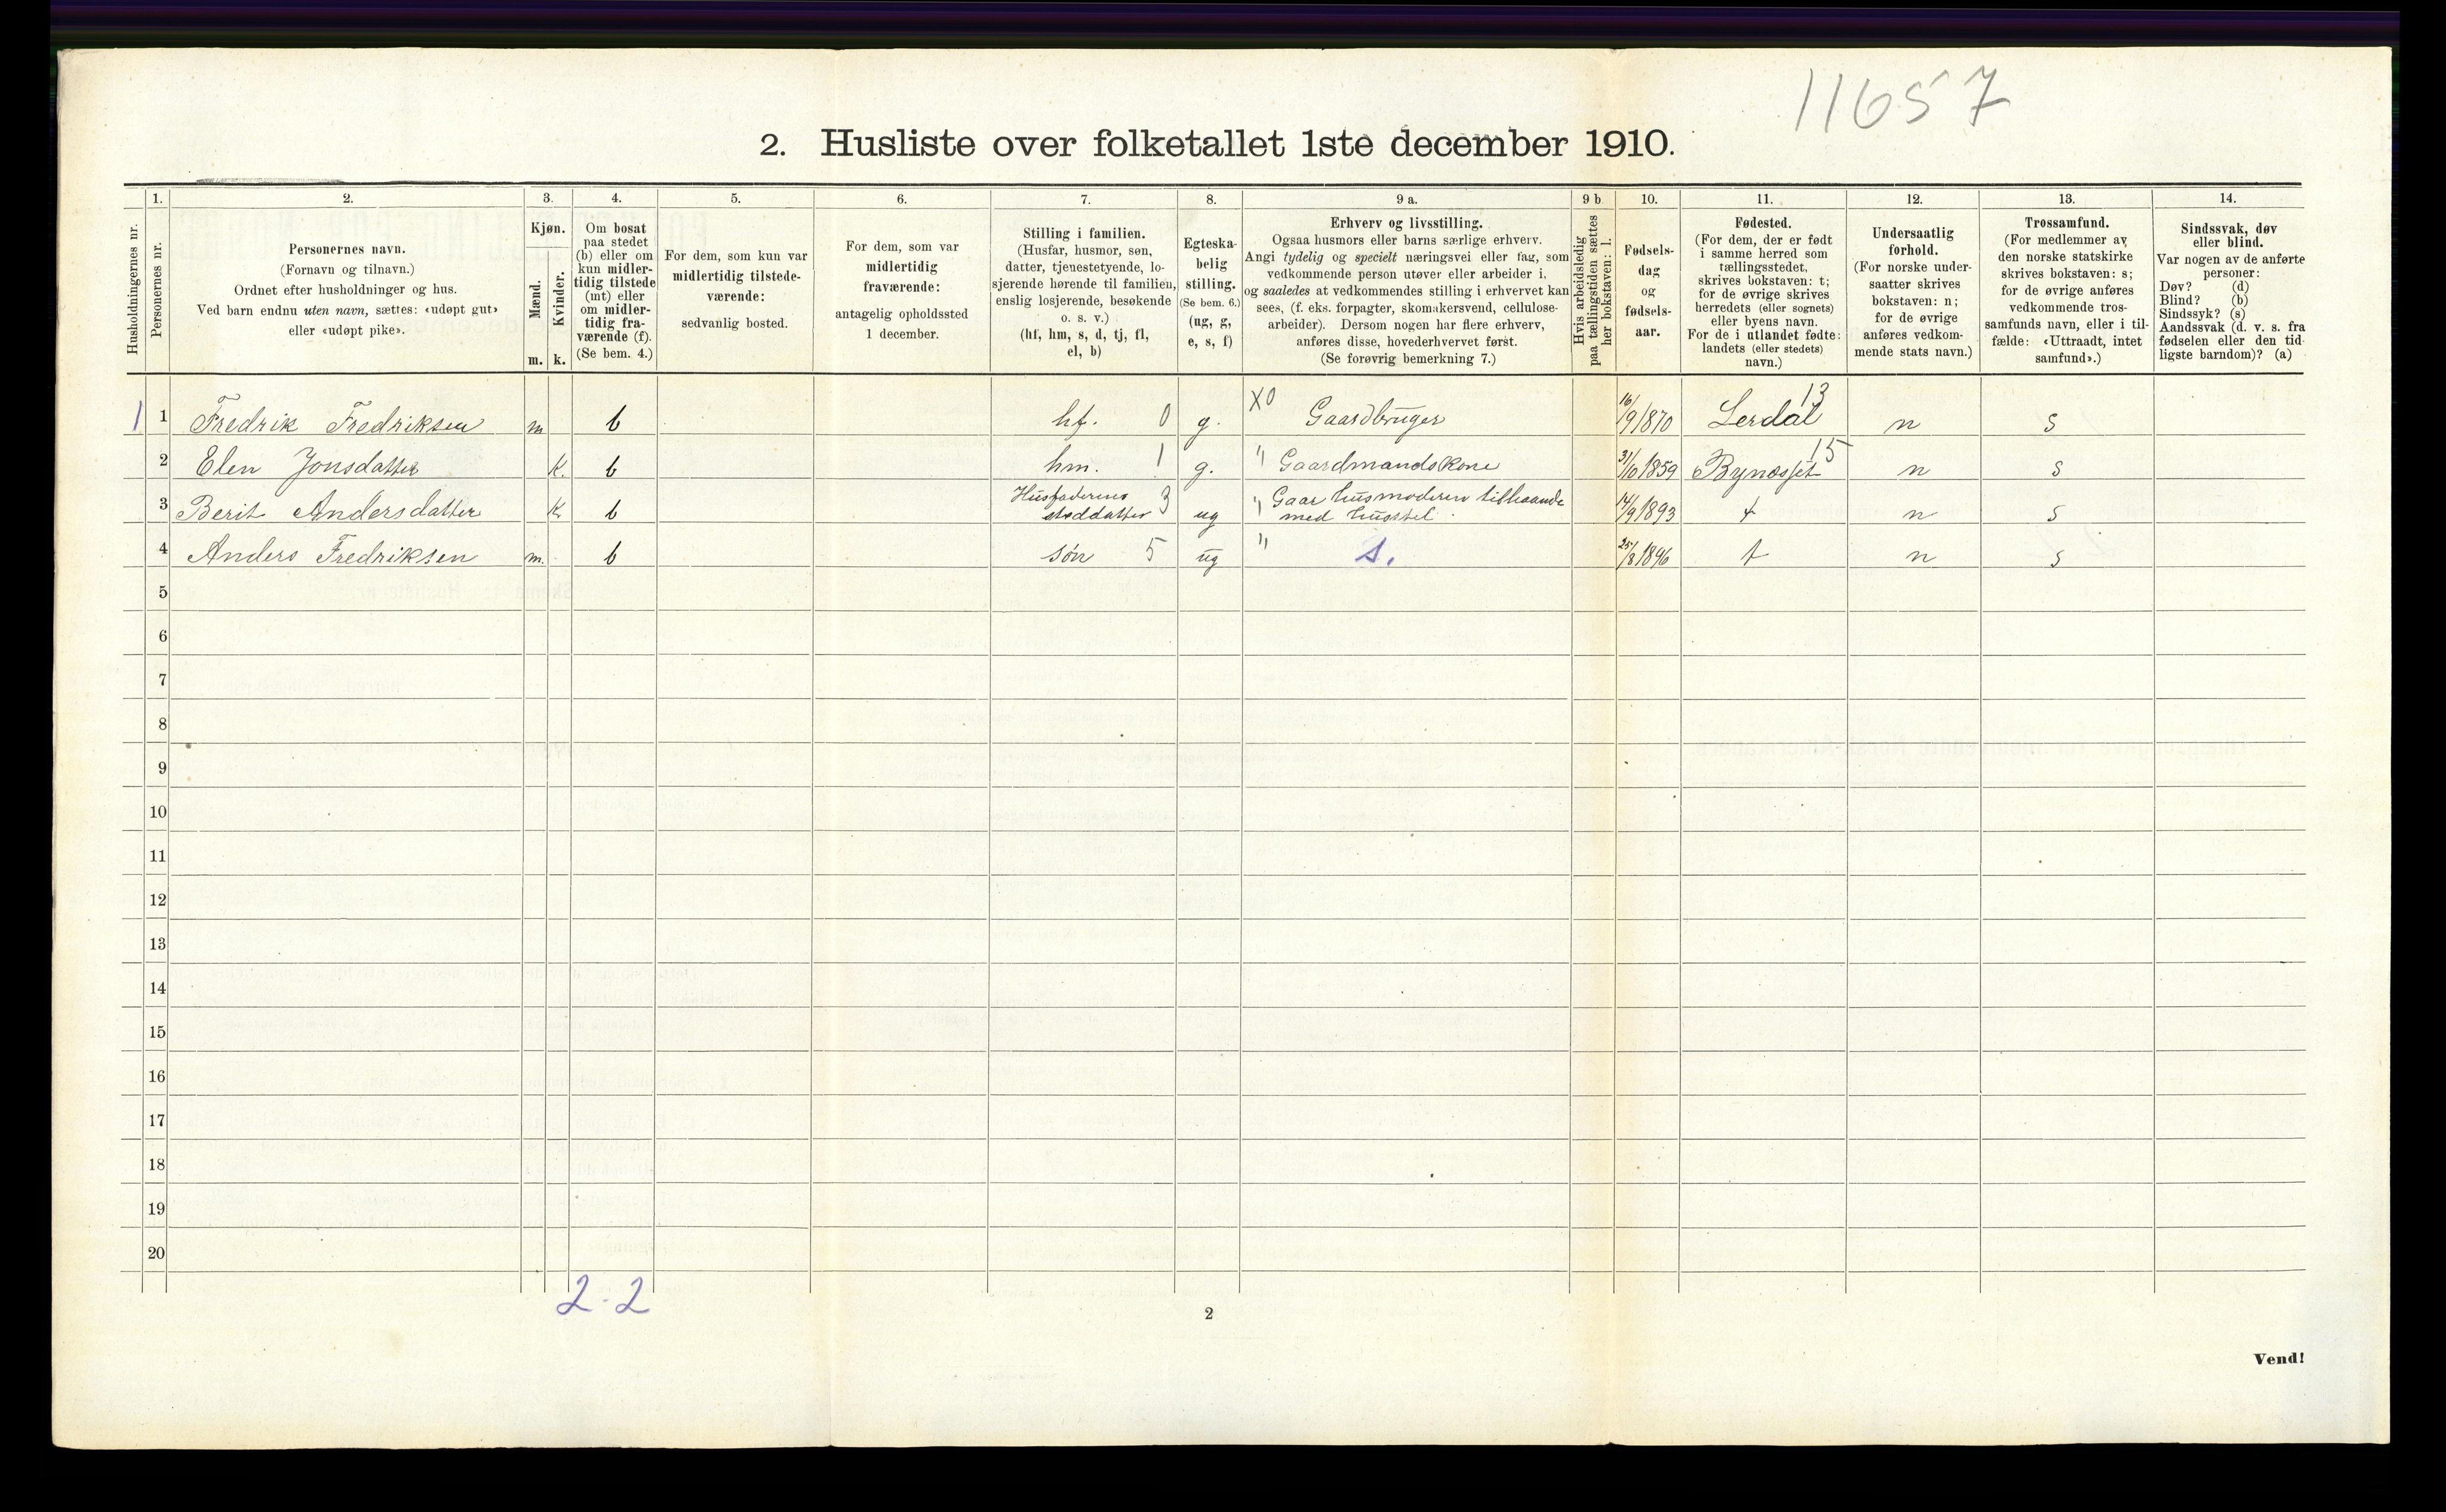 11657
2. Husliste over folketallet 1ste december 1910.
Husholdningernes nr.
1.
Personernes nr.
2.
Personernes navn.
(Fornavn og tilnavn.)
Ordnet efter husholdninger og hus.
Ved barn endnu uten navn, sættes: «udøpt gut»
eller «udøpt pike».
3.
Kjøn.
Mænd.
Kvinder.
m. k.
4.
Om bosat
paa stedet
(b) eller om
kun midler-
tidig tilstede
(mt) eller
om midler-
tidig fra-
værende (f).
(Se bem. 4.)
5.
For dem, som kun var
midlertidig tilstede-
værende:
sedvanlig bosted.
6.
For dem, som var
midlertidig
fraværende:
antagelig opholdssted
1 december.
7.
Stilling i familien.
(Husfar, husmor, søn,
datter, tjenestetyende, lo-
sjerende hørende til familien,
enslig losjerende, besøkende
o. s. v.)
(hf, hm, s, d, tj, fl,
el, b)
8.
Egteska-
belig
stilling.
(Se bem. 6.)
(ug, g,
e, s, f)
9 a.
Erhverv og livsstilling.
Ogsaa husmors eller barns særlige erhverv.
Angi tydelig og specielt næringsvei eller fag, som
vedkommende person utøver eller arbeider i,
og saaledes at vedkommendes stilling i erhvervet kan
sees, (f. eks. forpagter, skomakersvend, cellulose-
arbeider). Dersom nogen har flere erhverv,
anføres disse, hovederhvervet først.
(Se forøvrig bemerkning 7.)
9 b
Hvis arbeidsledig
paa tællingstiden sættes
her bokstaven: l.
10.
Fødsels-
dag
og
fødsels-
aar.
11.
Fødested.
(For dem, der er født
i samme herred som
tællingsstedet,
skrives bokstaven: t;
for de øvrige skrives
herredets (eller sognets)
eller byens navn.
For de i utlandet fødte:
landets (eller stedets)
navn.)
12.
Undersaatlig
forhold.
(For norske under-
saatter skrives
bokstaven: n;
for de øvrige
anføres vedkom-
mende stats navn.)
13.
Trossamfund.
(For medlemmer av
den norske statskirke
skrives bokstaven: s;
for de øvrige anføres
vedkommende tros-
samfunds navn, eller i til-
fælde: «Uttraadt, intet
samfund».)
14.
Sindssvak, døv
eller blind.
Var nogen av de anførte
personer:
Døv? (d)
Blind? (b)
Sindssyk? (s)
Aandssvak (d. v. s. fra
fødselen eller den tid-
ligste barndom)? (a)
1 1 Fredrik Fredriksen m b hf. 0 g. X0 Gaardbruger 16/9 1870 Lerdal 13 n s
2 Elen Jonsdatter k. b hm. 1 g. " Gaardmandskone 31/10 1859 Bynæsset 15 n s
3 Berit Andersdatter k b Husfaderens steddatter 3 ug " Gaar husmoderen tilhaande med husstel. 14/9 1893 t n s
4 Anders Fredriksen m. b søn 5 ug " s. 25/8 1896 t n s
5
6
7
8
9
10
11
12
13
14
15
16
17
18
19
20
2-2
2
Vend!